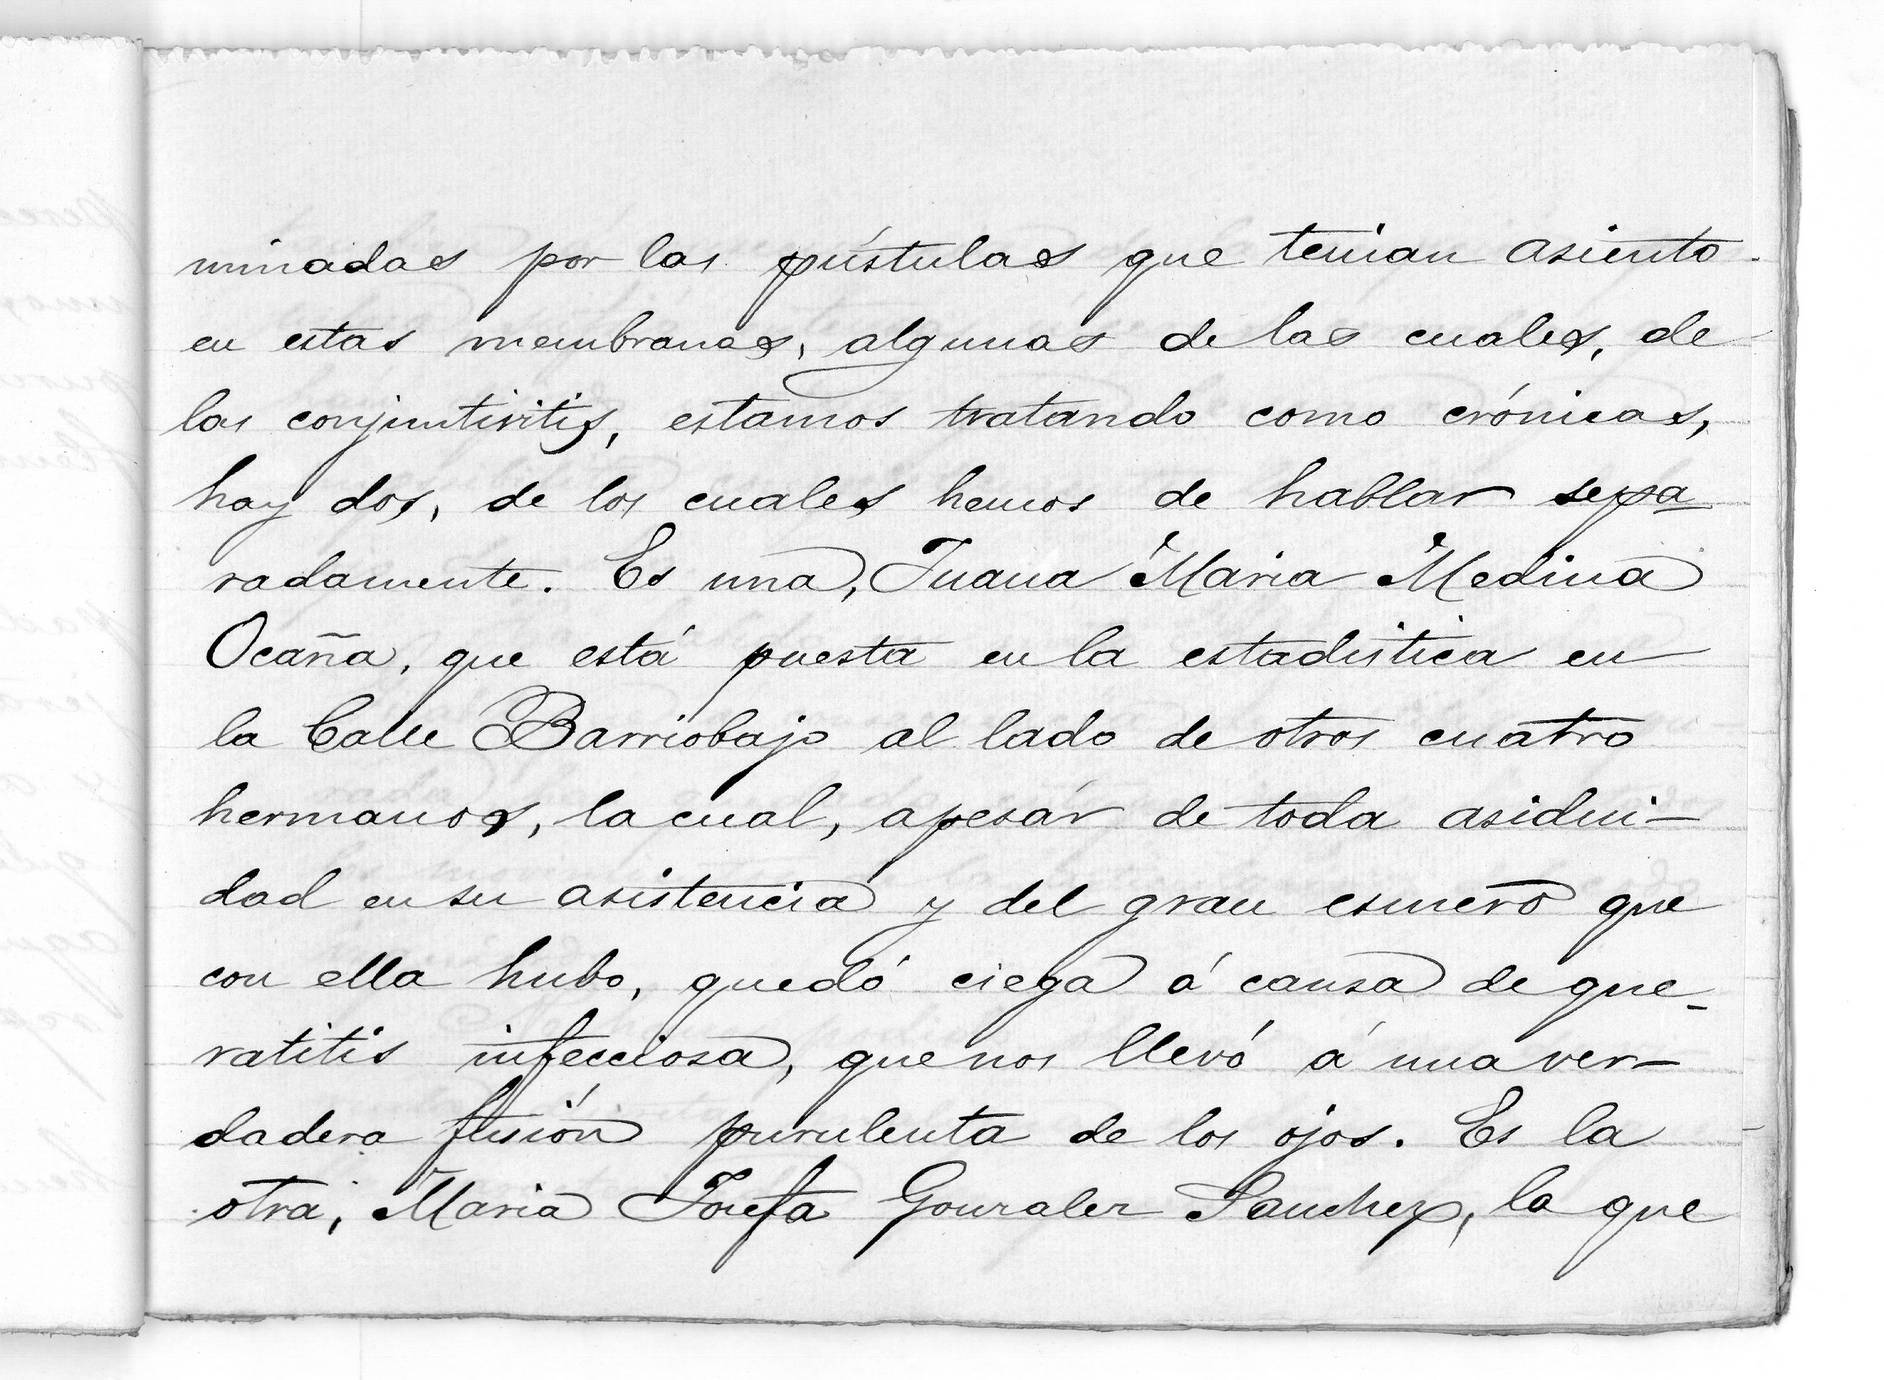 minadas por las pústulas que tenian asiento
en estas membranas, algunas de las cuales, de
las conjuntivitis, estamos tratando como crónicas,
hay dos, de los cuales hemos de hablar sepa
radamente. Es una, Juana Maria Medina
Ocaña, que está puesta en la estadistica en
la Calle Barriobajo al lado de otros cuatro
hermanos, la cual, apesár de toda asidui-
dad en su asistencia y del gran esmero que
con ella hubo, quedó ciega á causa de que-
ratitis infecciosa, que nos llevó á una ver-
dadera fusión purulenta de los ojos. Es la
otra, Maria Josefa Gonzalez Sanchez, la que